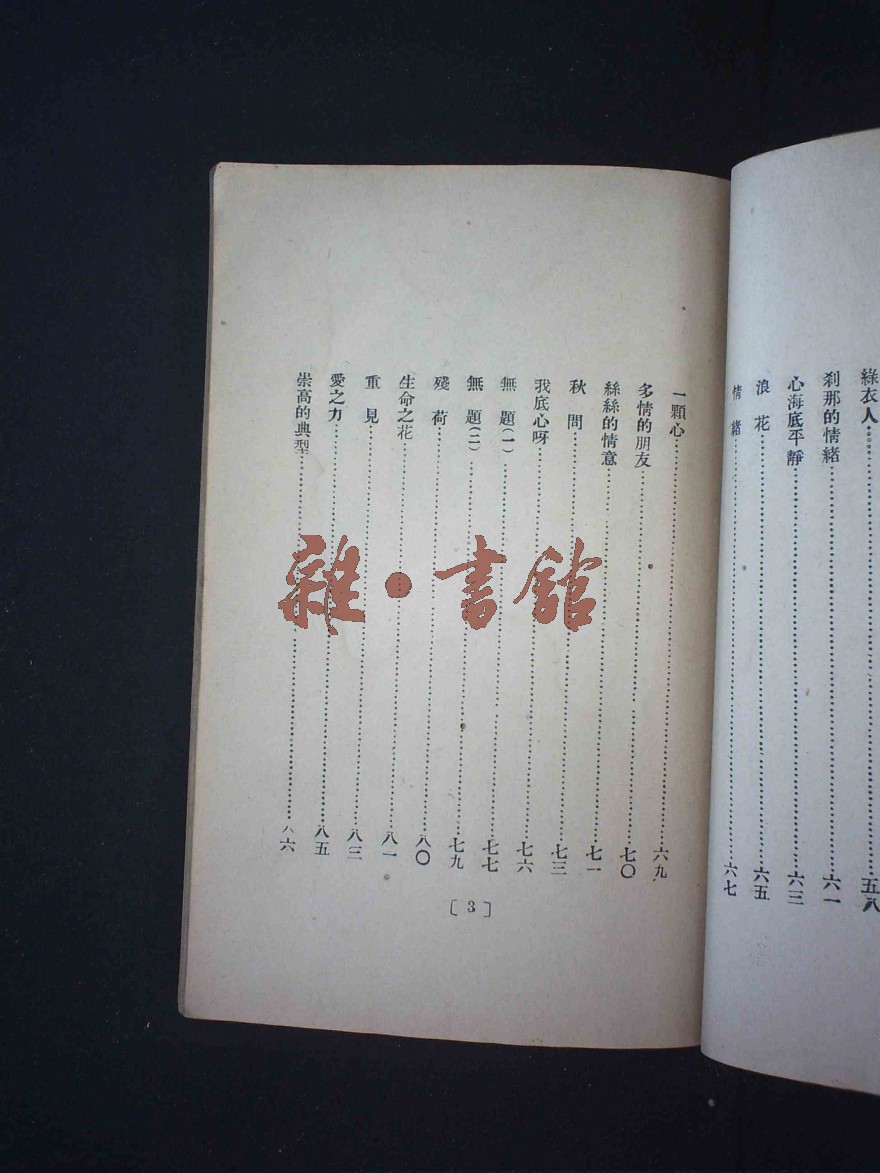 綠衣人……五八
刹那的情緒……六一
心海底平靜……六三
浪花……六五
情緒……六七
一顆心……六九
多情的朋友……七〇
絲絲的情意……七一
秋問……七三
我底心呀……七六
無題(一)……七七
無題(二)……七九
殘荷……八〇
生命之花……八一
重見……八三
愛之力……八五
崇高的典型……八六
〔3〕
雜·書館